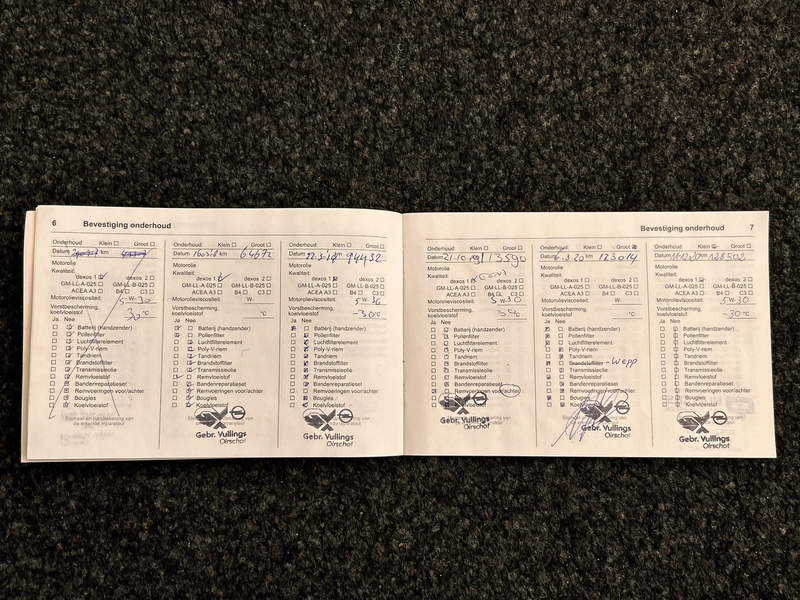 6 Bevestiging onderhoud
Onderhoud: Klein Groot
Datum km
Motorolie
Kwaliteit:
dexos 1 dexos 2
GM-LL-A-025 GM-LL-B-025
ACEA A3 B4 C3
Motorolieviscositeit: 5 W- 30
Vorstbescherming, koelvloeistof °C
Ja Nee
Batterij (handzender)
Pollenfilter
Luchtfilterelement
Poly-V-riem
Tandriem
Brandstoffilter
Transmissieolie
Remvloeistof
Bandenreparatieset
Remvoeringen voor/achter
Bougies
Koelvloeistof
Stempel en handtekening van de erkende reparateur
Onderhoud: Klein Groot
Datum km 64672
dexos 1 dexos 2
GM-LL-A-025 GM-LL-B-025
ACEA A3 B4 C3
W-
°C
Ja Nee
Batterij (handzender)
Pollenfilter
Luchtfilterelement
Poly-V-riem
Tandriem
Brandstoffilter
Transmissieolie
Remvloeistof
Bandenreparatieset
Remvoeringen voor/achter
Bougies
Koelvloeistof
Gebr. Vullings
Oirschot
Onderhoud: Klein Groot
Datum km 94432
dexos 1 dexos 2
GM-LL-A-025 GM-LL-B-025
ACEA A3 B4 C3
5W-30
-30°C
Ja Nee
Batterij (handzender)
Pollenfilter
Luchtfilterelement
Poly-V-riem
Tandriem
Brandstoffilter
Transmissieolie
Remvloeistof
Bandenreparatieset
Remvoeringen voor/achter
Bougies
Koelvloeistof
Gebr. Vullings
Oirschot
Bevestiging onderhoud 7
Onderhoud: Klein Groot
Datum 21-10 113590
Motorolie
Kwaliteit:
dexos 1 dexos 2
GM-LL-A-025 GM-LL-B-025
ACEA A3 B4 C3
Motorolieviscositeit: 5 W-30
Vorstbescherming, koelvloeistof °C
Ja Nee
Batterij (handzender)
Pollenfilter
Luchtfilterelement
Poly-V-riem
Tandriem
Brandstoffilter
Transmissieolie
Remvloeistof
Bandenreparatieset
Remvoeringen voor/achter
Bougies
Koelvloeistof
Gebr. Vullings
Oirschot
Onderhoud: Klein Groot
Datum km 123014
dexos 1 dexos 2
GM-LL-A-025 GM-LL-B-025
ACEA A3 B4 C3
W-
°C
Ja Nee
Batterij (handzender)
Pollenfilter
Luchtfilterelement
Poly-V-riem
Tandriem
Brandstoffilter
Transmissieolie
Remvloeistof
Bandenreparatieset
Remvoeringen voor/achter
Bougies
Koelvloeistof
Gebr. Vullings
Oirschot
Onderhoud: Klein Groot
Datum km 128502
dexos 1 dexos 2
GM-LL-A-025 GM-LL-B-025
ACEA A3 B4 C3
5W-30
-30°C
Ja Nee
Batterij (handzender)
Pollenfilter
Luchtfilterelement
Poly-V-riem
Tandriem
Brandstoffilter
Transmissieolie
Remvloeistof
Bandenreparatieset
Remvoeringen voor/achter
Bougies
Koelvloeistof
Gebr. Vullings
Oirschot